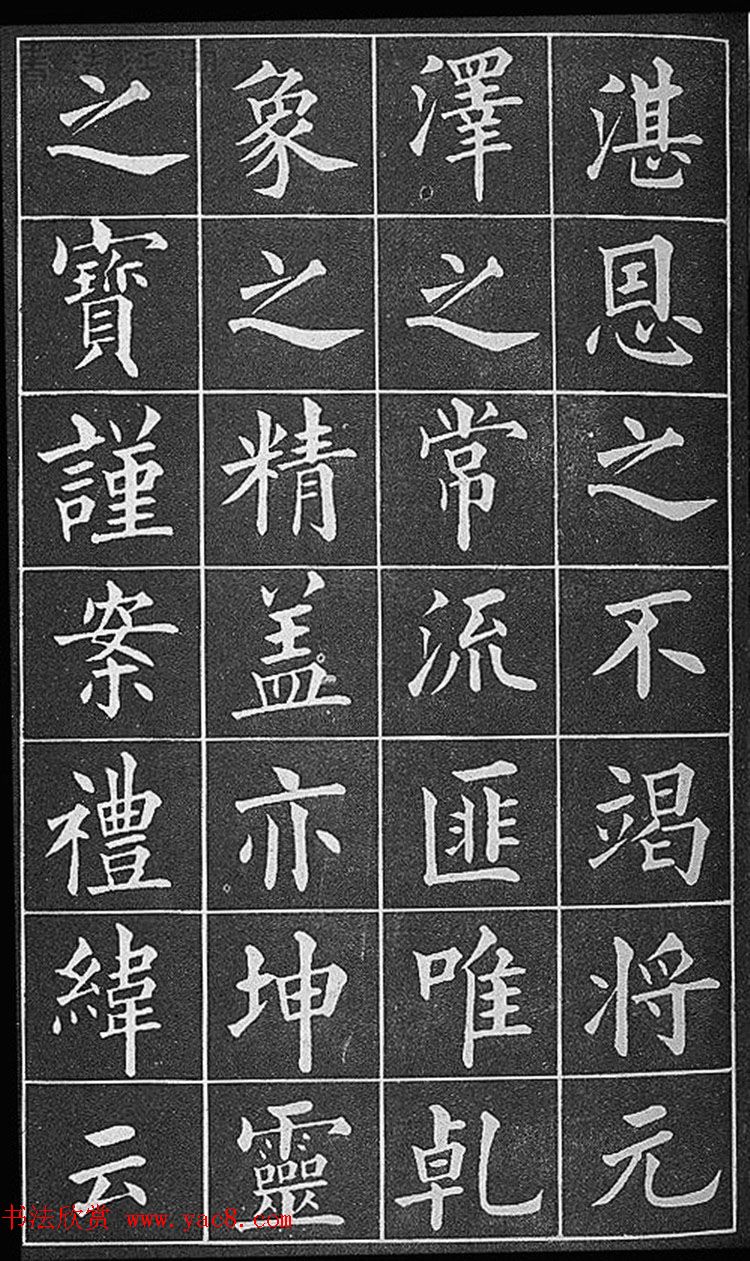 湛恩之不竭将元
澤之常流匪唯乹
象之精盖亦坤靈
之寶謹案禮緯云
书法欣赏 www.yac8.com